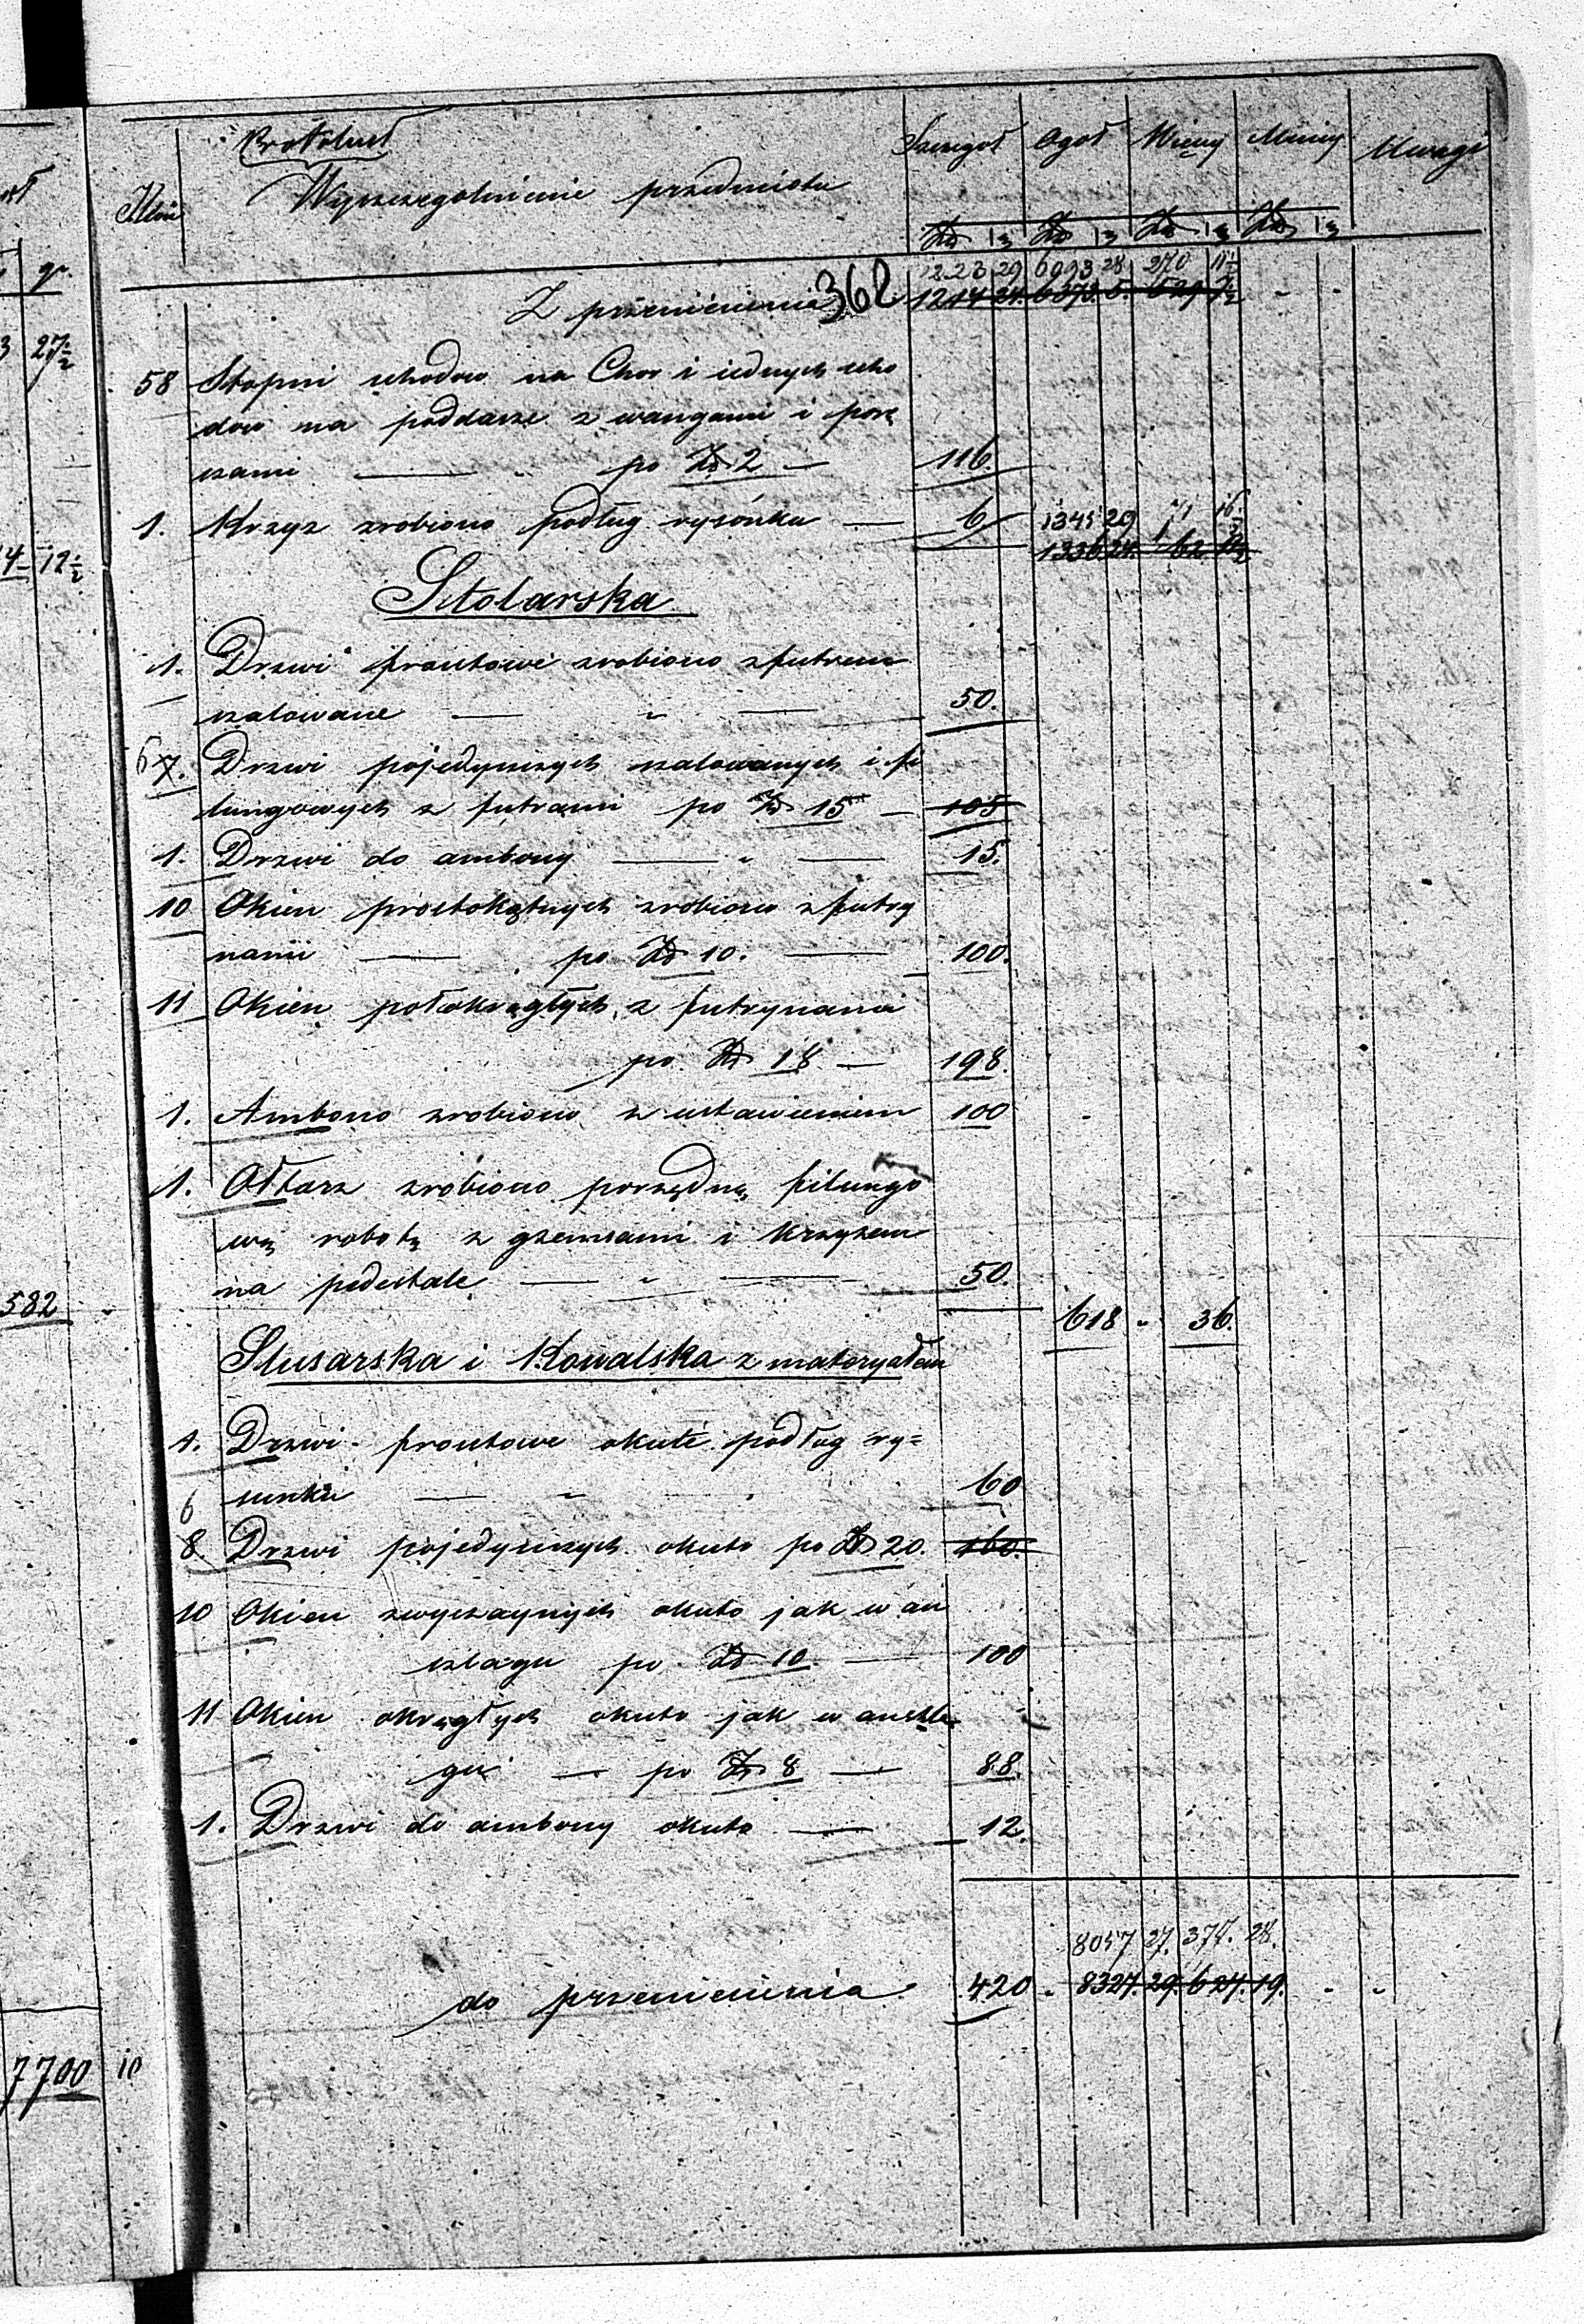 gr.
27½
12½
582
7700 10
Protokuł
Ilość Wyszczególnienie przedmiotu Szczegół Ogół Więcy Mniey Uwagi
Zł g Zł g Zł g Zł g
1223 29 6093 28 270 11½
Z przeniesienia 362 1214 24. 6373. 5. 529 7½ - -
58 Stopni schodow na Chor i iednych scho
dow na poddasze z wangami i porę
czami — " po Zł 2 — 116.
1. Krzyz zrobiono podług rysónku — 6
1345 29 71 16
1336 24.
Stolarska
1. Drzwi frontowe zrobiono z futrem
szalowane — " — 50.
6 7. Drzwi pojedynczych szalowanych i fi
lungowych z futrami po Zł 15 — 105
1. Drzwi do ambony — " — 15.
10 Okien prostokątnych zrobiono z futry
nami — po Zł 10. — 100.
11 Okien połokrągłych z futrynami
po Zł 18 — 198.
1. Ambono zrobiono z ustawieniem 100
1. Ołtarz zrobiono porządną filungo
wą robotą z gzemsami i krzyzem
na pedestale — " — 50.
618 " 36.
Slusarska i Kowalska z materyałem
1. Drzwi frontowe okute podług ry=
sunku — " 60
6
8. Drzwi pojedynczych okuto po Zł 20. 160.
10 Okien zwyczaynych okuto jak w an
szlagu po Zł 10. — 100
11 Okien okrągłych okuto jak w anszla
gu — po Zł 8 — 88.
1. Drzwi do ambony okuto — 12.
8057 27. 377. 28.
do przeniesienia 420 - 8327. 29. 627. 19. - -